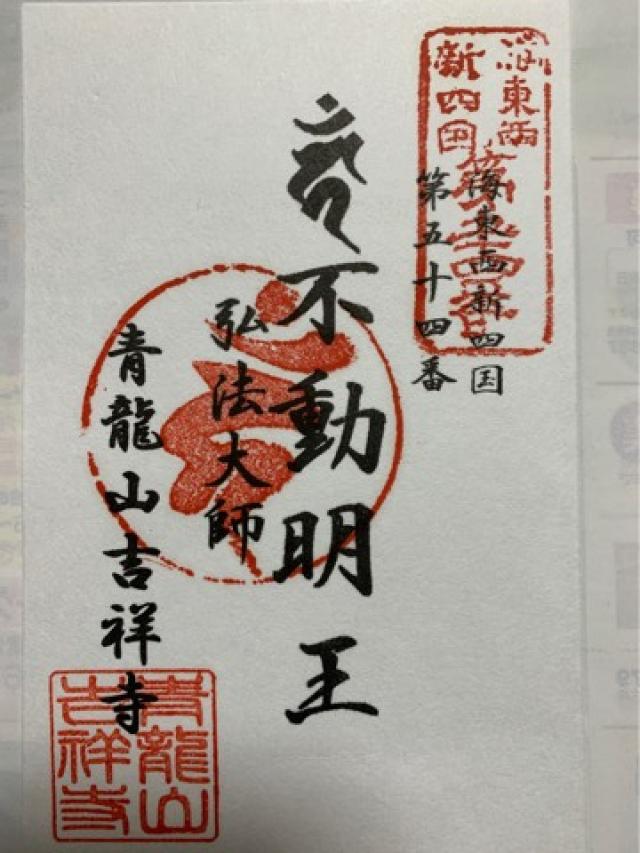 海東西
新四国
第五十四番
海東西新四国
第五十四番
不動明王
弘法大師
青龍山吉祥寺
青龍山
吉祥寺